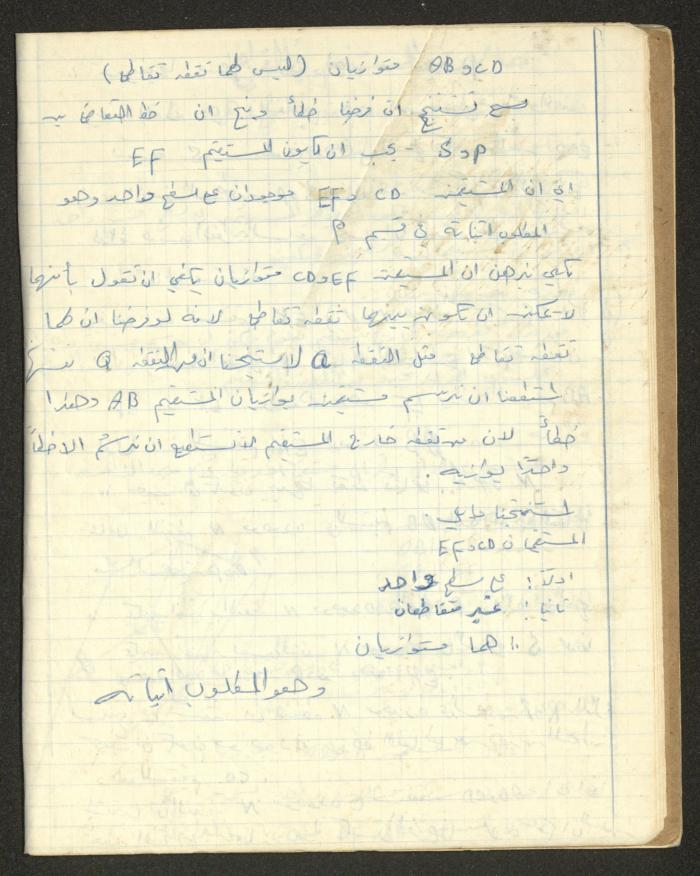 AB و CD متوازيان (ليس لهما نقطة تقاطع)
نستنتج ان فرضنا خطأ وينتج ان خط التقاطع بين
P و S يجب ان يكون المستقيم EF
اي ان المستقيمين CD و EF موجودان على سطح واحد وهو
المطلوب اثباته في قسم P
لكي نبرهن ان المستقيمين EF و CD متوازيان يكفي ان نقول بأنهما
لا يمكن ان تكون بينهما نقطة تقاطع لانه لو فرضنا ان لهما
نقطة تقاطع مثل النقطة Q لاستنتجنا ان من النقطة Q نفسها
استطعنا ان نرسم مستقيمين يوازيان المستقيم AB وهذا
خطأ لان من نقطة خارج المستقيم لا نستطيع ان نرسم الا خطاً
واحداً يوازيه .
استنتجنا مايلي :
المستقيمان CD و EF
اولاً : على سطح واحد
ثانيا : غير متقاطعان
∴ هما متوازيان
وهو المطلوب اثباته